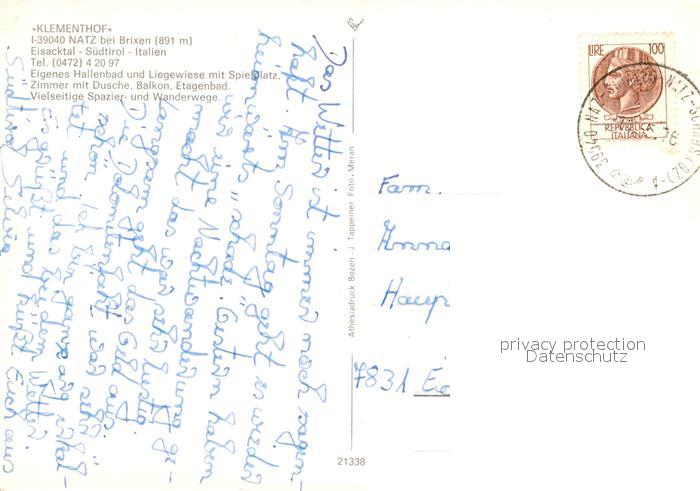 »KLEMENTHOF«
I-39040 NATZ bei Brixen (891 m)
Eisacktal - Südtirol - Italien
Tel. (0472) 4 20 97
Eigenes Hallenbad und Liegewiese mit Spielplatz,
Zimmer mit Dusche, Balkon, Etagenbad.
Vielseitige Spazier- und Wanderwege.
Das Wetter ist immer noch sagen-
haft. Am Sonntag geht es wieder
heimwärts "schade". Gestern haben
wir eine Nachtwanderung ge-
macht das war sehr lustig.
Langsam geht das Geld aus.
Die Dolomitenfahrt war sehr
schön. Ich bin ganz arg erkäl-
tet und das bei dem Wetter
Es grüßt und küßt Euch aus
Südtirol Silvia
Athesiadruck Bozen - J. Tappeiner Foto, Meran
21338
LIRE 100
REPVBBLICA
ITALIANA
39040 NATZ-SCHABS
Fam.
Anna
Haup
7831
privacy protection
Datenschutz